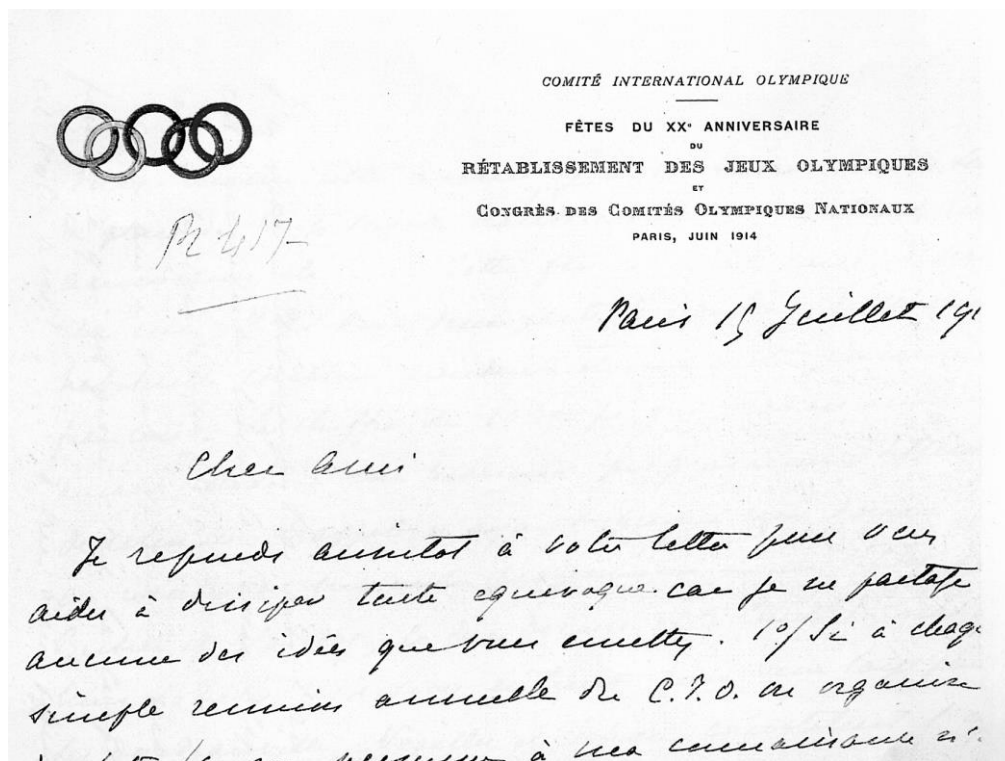 COMITÉ INTERNATIONAL OLYMPIQUE
FÊTES DU XXe ANNIVERSAIRE
DU
RÉTABLISSEMENT DES JEUX OLYMPIQUES
ET
CONGRÈS DES COMITÉS OLYMPIQUES NATIONAUX
PARIS, JUIN 1914
Paris 15 Juillet 191
Cher Ami
Je reponds aussitot à votre lettre pour vous
aider a dissiper toute equivoque car je ne partage
aucune des idées que vous emettez. 1o/ Si à chaq
simple reunion annuelle du C.I.O. on organise
à ma connaissance